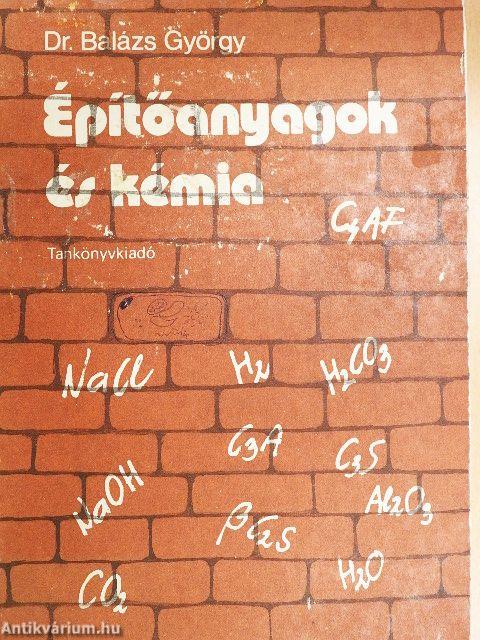 Dr. Balázs György
Építőanyagok
és kémia
C₄AF
Tankönyvkiadó
NaCl
H₂
H₂CO₃
C₃A
C₃S
NaOH
Al₂O₃
βC₂S
H₂O
CO₂
Antikvárium.hu